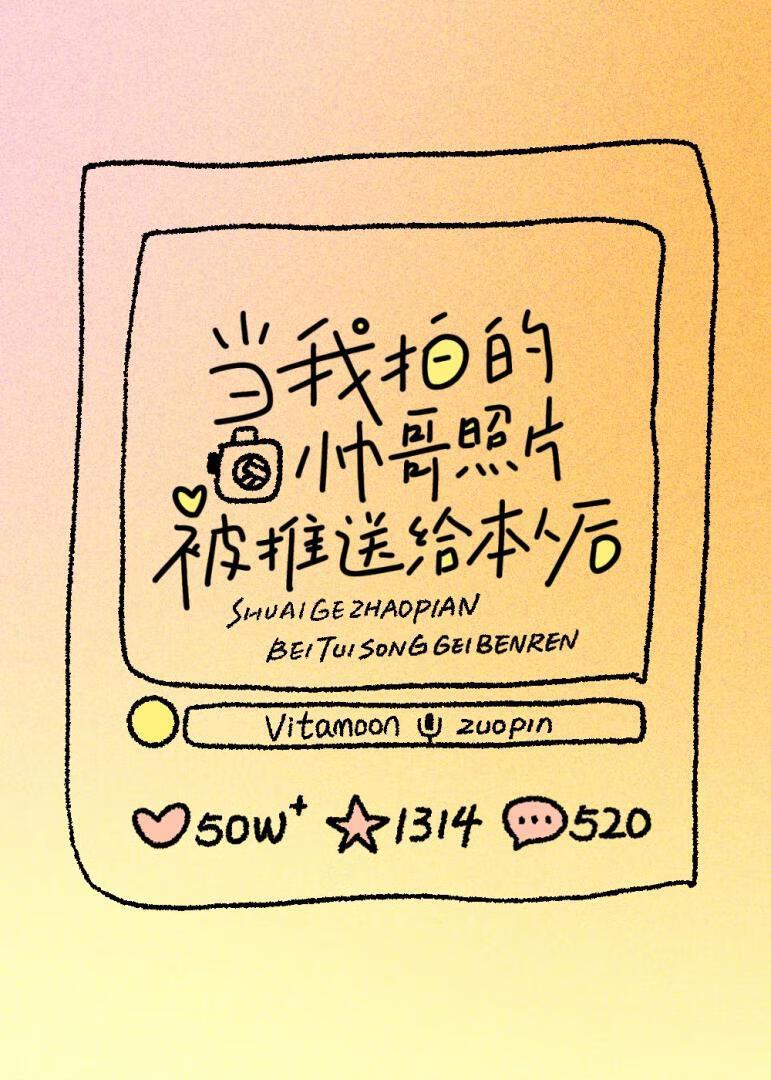 当我拍的
帅哥照片
被推送给本人后
SHUAIGEZHAOPIAN
BEITUISONGGEIBENREN
Vitamoon zuopin
50W+ 1314 520